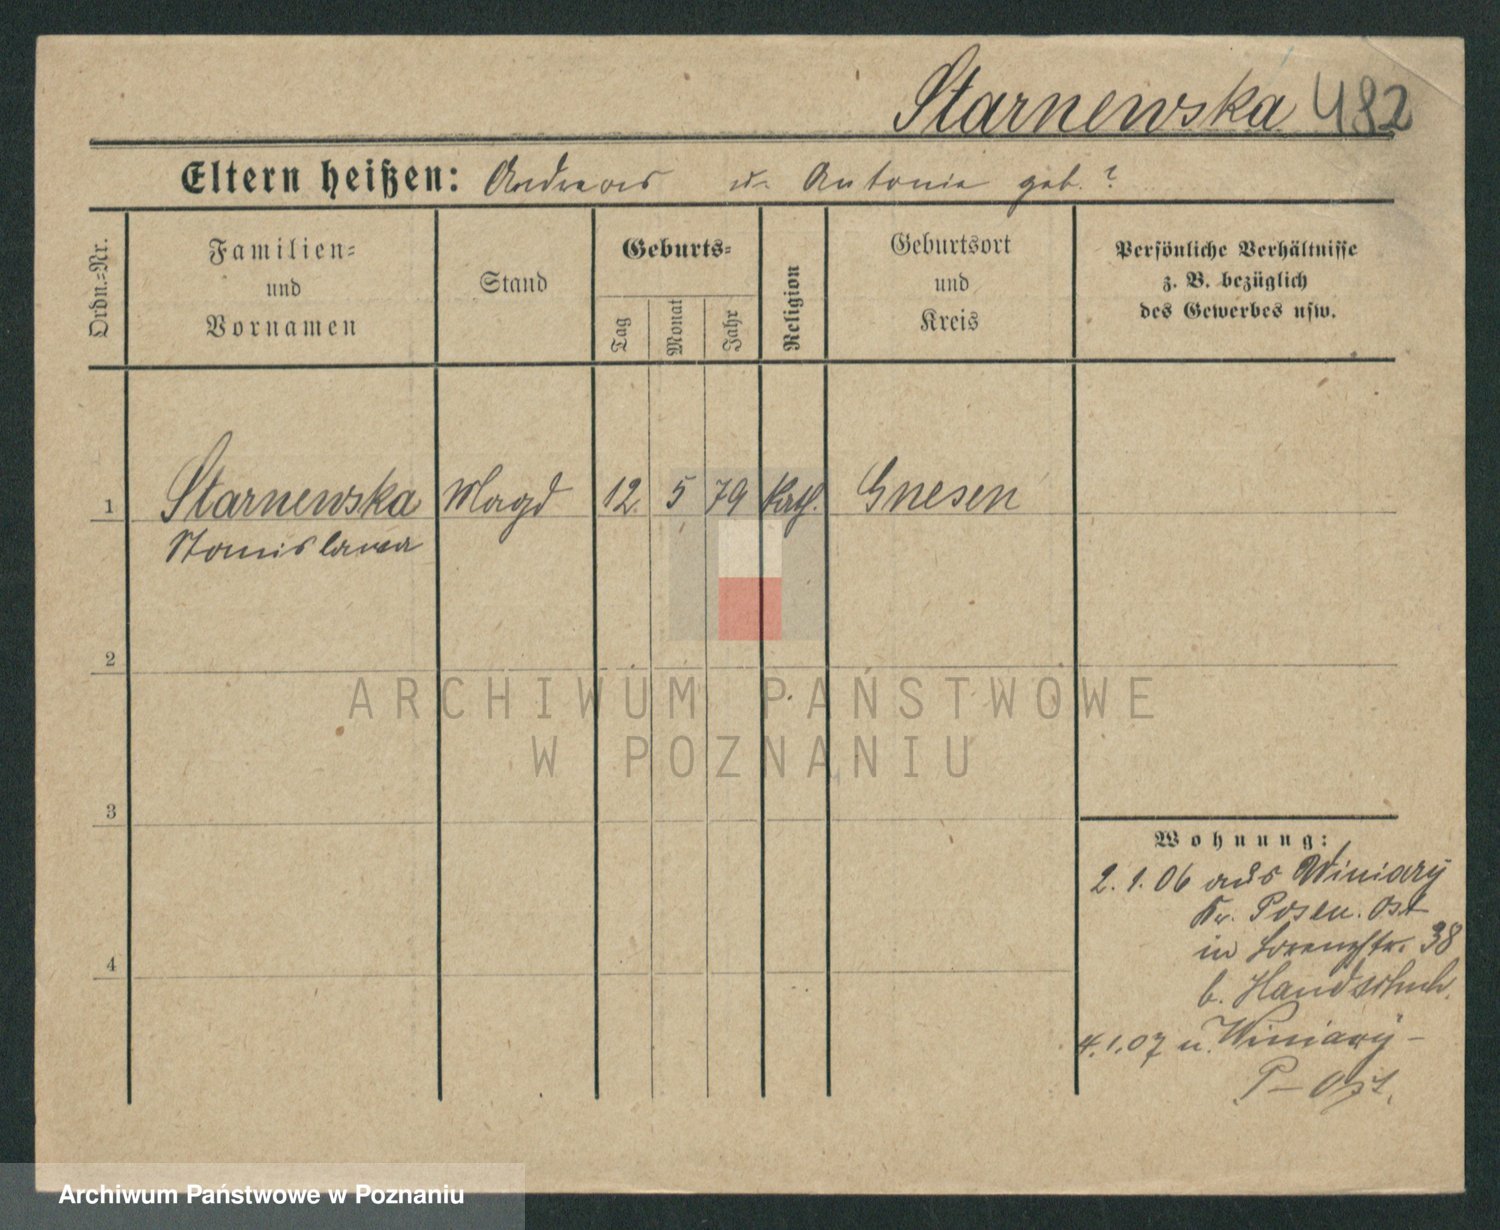 Starnewska 482
Eltern heißen: Andreas u. Antonie geb. ?
Ordn.-Nr.
Familien-
und
Vornamen
Stand
Geburts-
Tag
Monat
Jahr
Religion
Geburtsort
und
Kreis
Persönliche Verhältnisse
z. B. bezüglich
des Gewerbes usw.
1 Starnewska Magd 12. 5 79 Kath. Gnesen
Stanislawa
2
3
4
Wohnung:
2. 1. 06 aus Winiary
Kr. Posen. Ost
in Lorenzstr. 38
b. Handschuh.
4. 1. 07 n. Winiary -
P - Ost.
ARCHIWUM PAŃSTWOWE
W POZNANIU
Archiwum Państwowe w Poznaniu